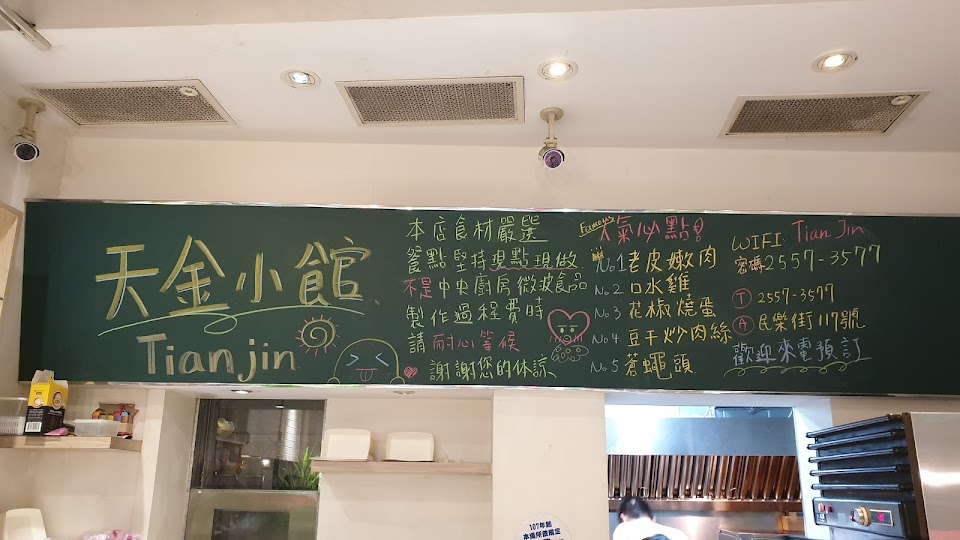 天金小館
Tianjin
本店食材嚴選
餐點堅持現點現做
不是中央廚房微波食品
製作過程費時
請耐心等候
謝謝您的休諒
Famous 人氣必點!
No.1 老皮嫩肉
No.2 口水雞
No.3 花椒燒蛋
No.4 豆干炒肉絲
No.5 蒼蠅頭
WIFI: Tian Jin
密碼 2557-3577
T 2557-3577
A 民樂街117號
歡迎來電預訂
107年起